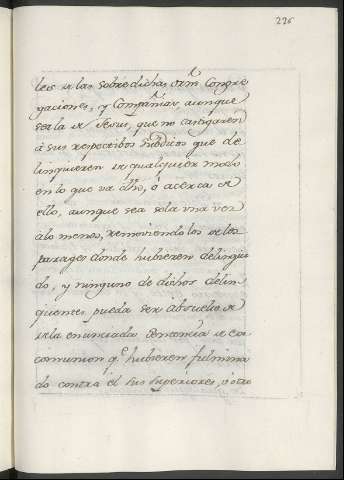 226
les de las sobredichas Ordn.s Congre
gaciones, y Compañias, aunque
sea la de Jesus, que no castigaren
à sus respectibos subditos que de
linquieren de qualquier modo
en lo que va dho, ó acerca de
ello, aunque sea sola una vez
alo menos, removiendolos de los
parages donde hubieren delinqui
do, y ninguno de dichos delin
quentes pueda ser absuelto de
de la enunciada sentencia de ex
comunion q.e hubieren fulmina
do contra él sus Superiores, ù otro